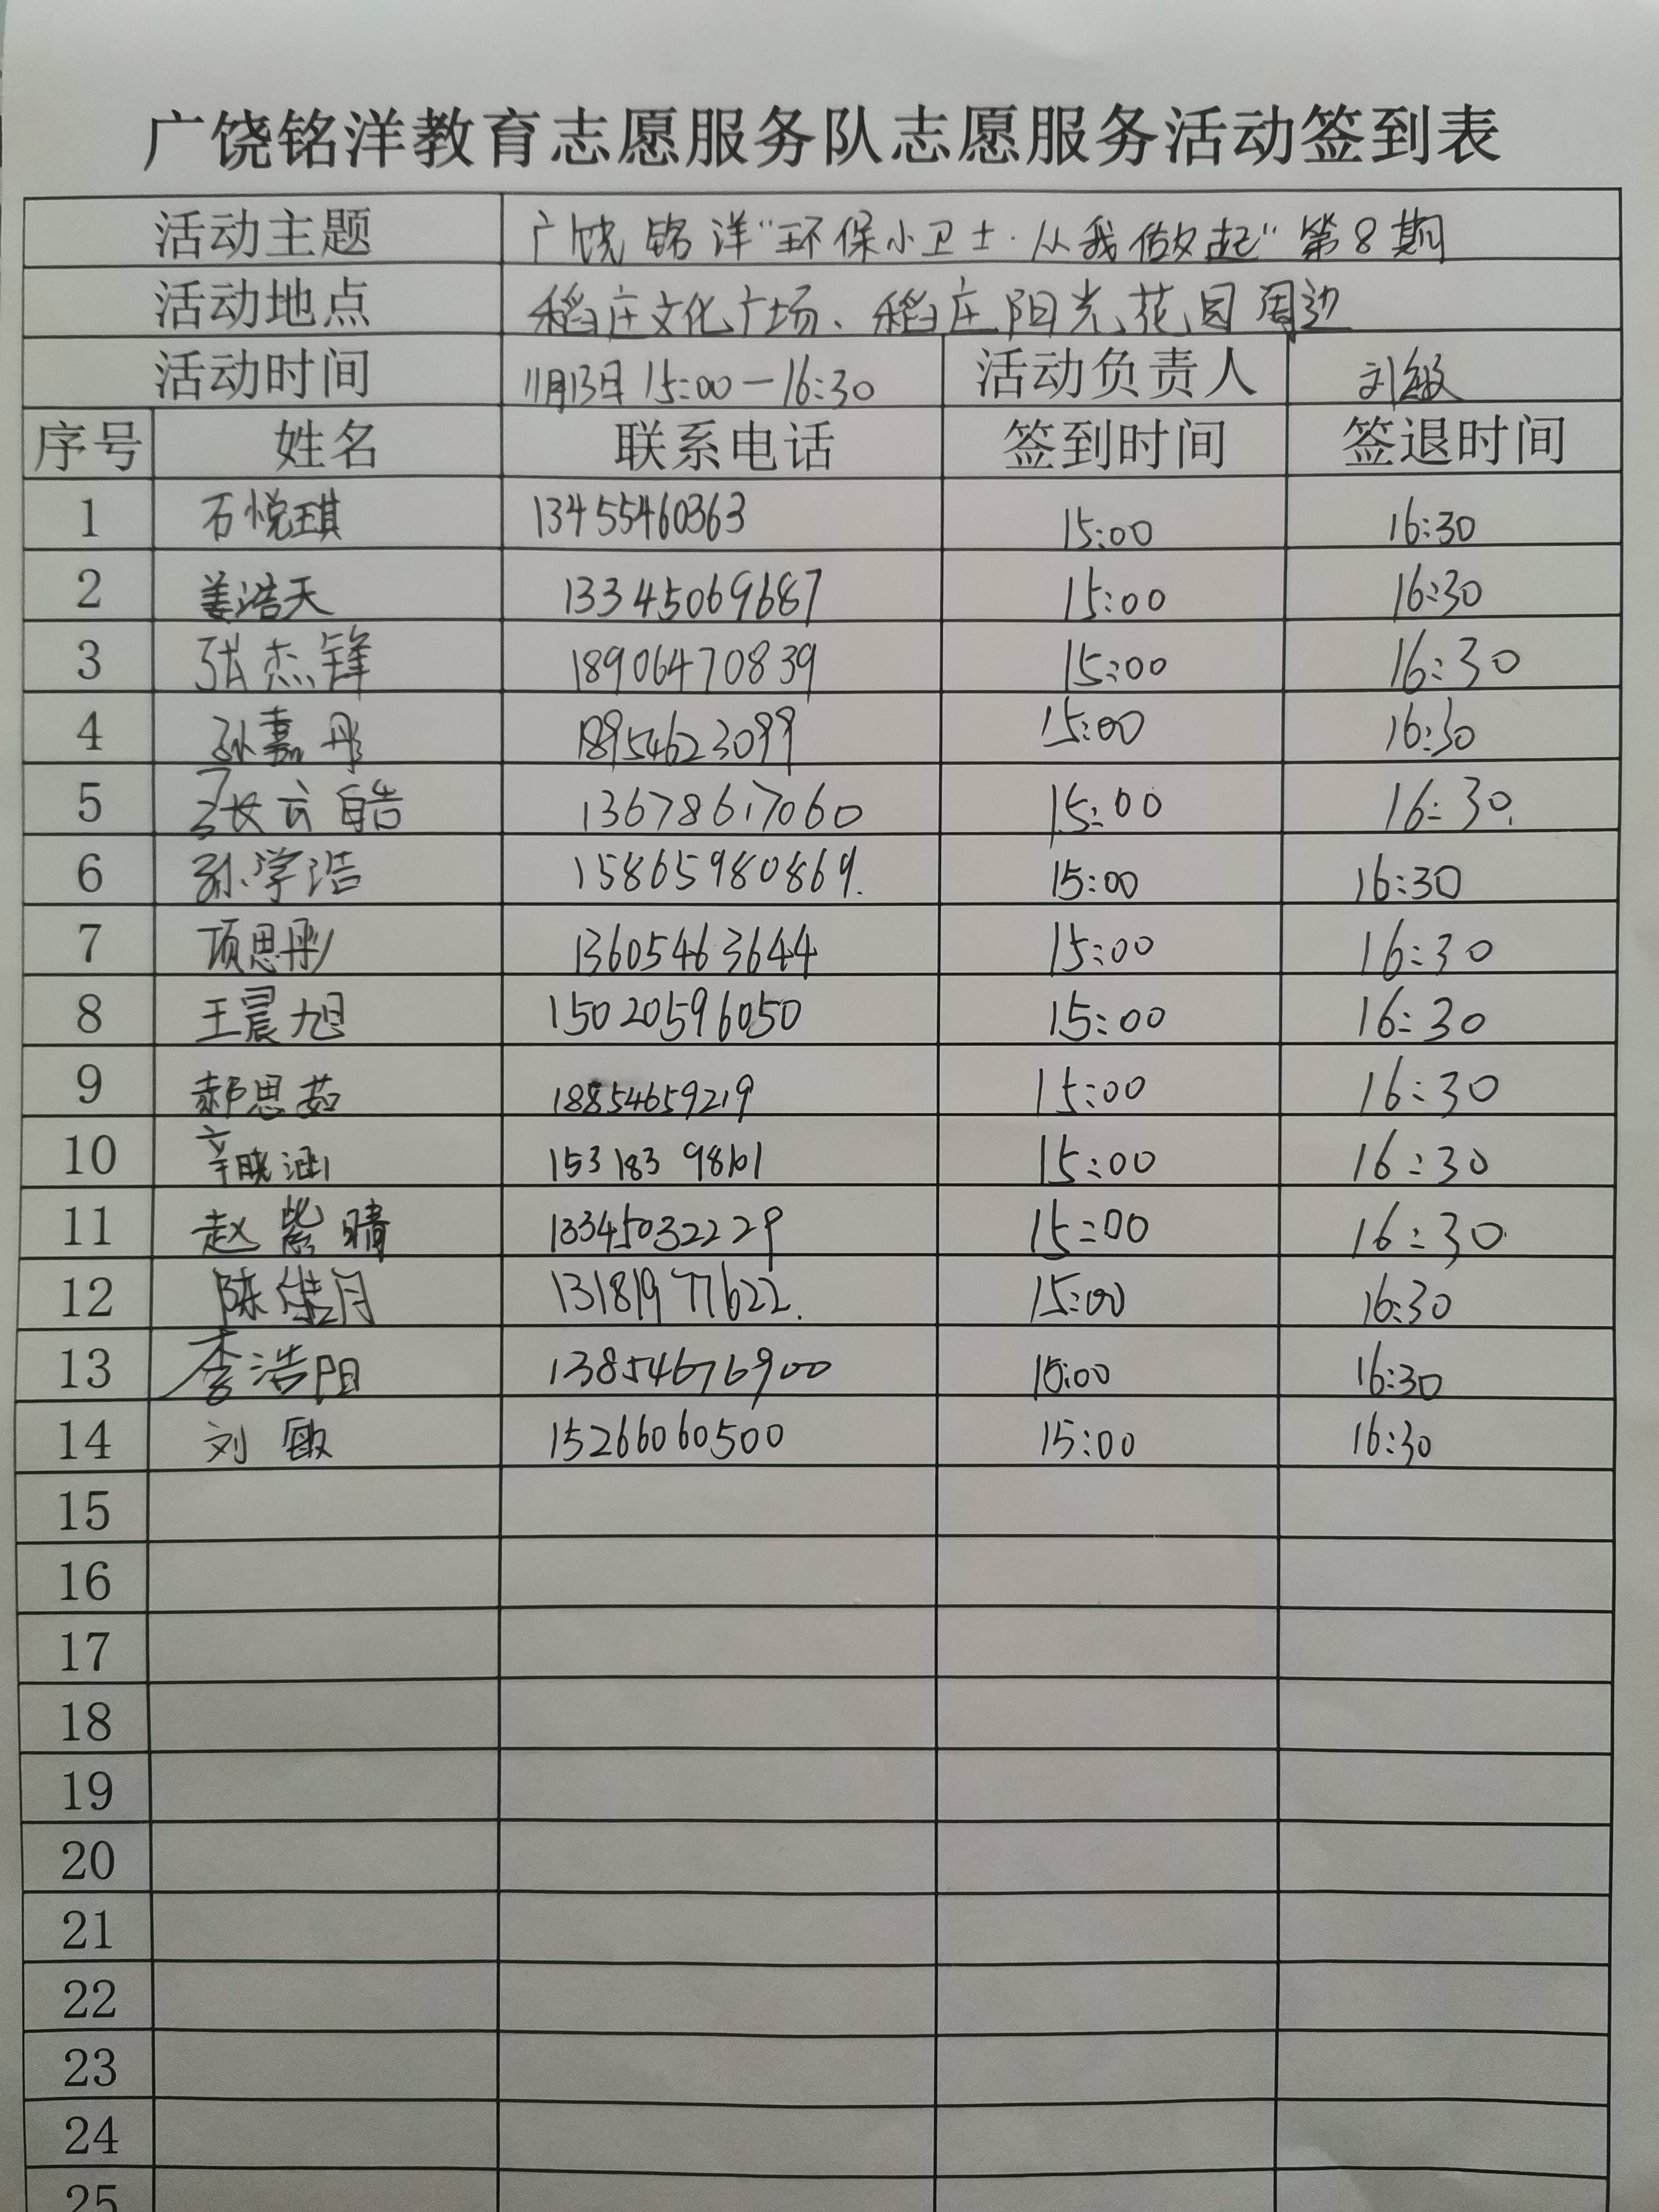 广饶铭洋教育志愿服务队志愿服务活动签到表
活动主题 广饶铭洋“环保小卫士·从我做起”第8期
活动地点 稻庄文化广场、稻庄阳光花园周边
活动时间 11月13日 15:00—16:30 活动负责人 刘敏
序号 姓名 联系电话 签到时间 签退时间
1 石悦琪 13455460363 15:00 16:30
2 姜浩天 13345069687 15:00 16:30
3 张杰锋 18906470839 15:00 16:30
4 孙嘉彤 18954623099 15:00 16:30
5 张云皓 13678617060 15:00 16:30
6 孙学浩 15865980869. 15:00 16:30
7 项思彤 13605463644 15:00 16:30
8 王晨旭 15020596050 15:00 16:30
9 郝思茹 18854659219 15:00 16:30
10 辛晓涵 15:00 16:30
11 赵紫晴 13345032229 15:00 16:30
12 陈佳月 13181977622. 15:00 16:30
13 李浩阳 13854676900 15:00 16:30
14 刘敏 15266060500 15:00 16:30
15
16
17
18
19
20
21
22
23
24
25